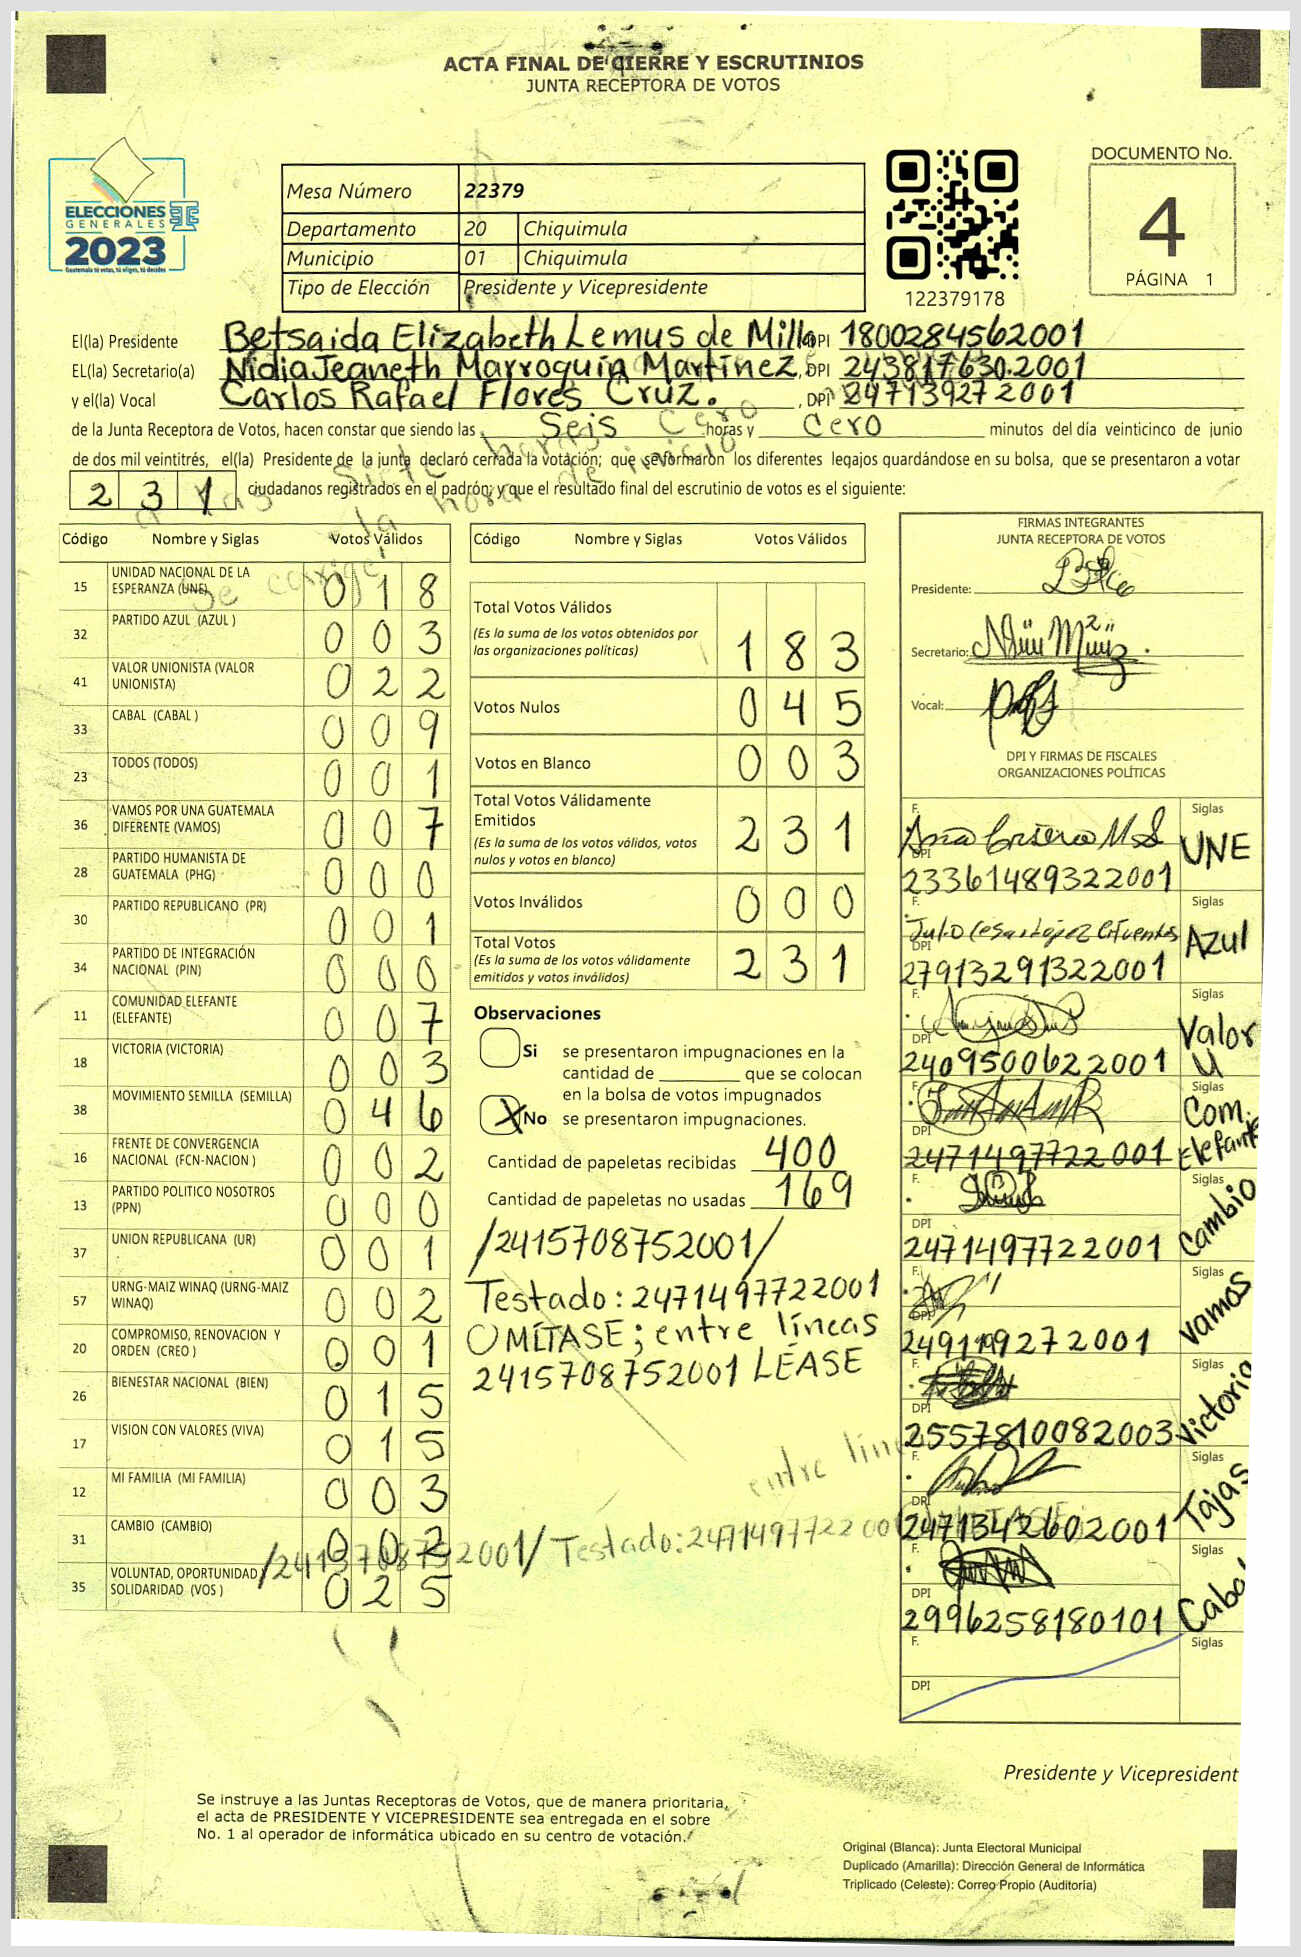 ACTA FINAL DE CIERRE Y ESCRUTINIOS
JUNTA RECEPTORA DE VOTOS
DOCUMENTO No.
4
PÁGINA 1
ELECCIONES
GENERALES
2023
Guatemala tú votas, tú eliges, tú decides
Mesa Número 22379
Departamento 20 Chiquimula
Municipio 01 Chiquimula
Tipo de Elección Presidente y Vicepresidente
122379178
El(la) Presidente Betsaida Elizabeth Lemus de Milla DPI 1800284562001
EL(la) Secretario(a) Nidia Jeaneth Marroquín Martínez, DPI 2438176302001
y el(la) Vocal Carlos Rafael Flores Cruz. , DPI 247139272001
de la Junta Receptora de Votos, hacen constar que siendo las Seis Cero horas y Cero minutos del día veinticinco de junio
de dos mil veintitrés, el(la) Presidente de la junta declaró cerrada la votación; que se formaron los diferentes legajos quardándose en su bolsa, que se presentaron a votar
231 ciudadanos registrados en el padrón; y que el resultado final del escrutinio de votos es el siguiente:
Se corrige la hora de inicio
a las siete horas
Código Nombre y Siglas Votos Válidos
15 UNIDAD NACIONAL DE LA ESPERANZA (UNE) 018
32 PARTIDO AZUL (AZUL ) 003
41 VALOR UNIONISTA (VALOR UNIONISTA) 022
33 CABAL (CABAL ) 009
23 TODOS (TODOS) 001
36 VAMOS POR UNA GUATEMALA DIFERENTE (VAMOS) 007
28 PARTIDO HUMANISTA DE GUATEMALA (PHG) 000
30 PARTIDO REPUBLICANO (PR) 001
34 PARTIDO DE INTEGRACIÓN NACIONAL (PIN) 000
11 COMUNIDAD ELEFANTE (ELEFANTE) 007
18 VICTORIA (VICTORIA) 003
38 MOVIMIENTO SEMILLA (SEMILLA) 046
16 FRENTE DE CONVERGENCIA NACIONAL (FCN-NACION ) 002
13 PARTIDO POLITICO NOSOTROS (PPN) 000
37 UNION REPUBLICANA (UR) 001
57 URNG-MAIZ WINAQ (URNG-MAIZ WINAQ) 002
20 COMPROMISO, RENOVACION Y ORDEN (CREO ) 001
26 BIENESTAR NACIONAL (BIEN) 015
17 VISION CON VALORES (VIVA) 015
12 MI FAMILIA (MI FAMILIA) 003
31 CAMBIO (CAMBIO) 002
35 VOLUNTAD, OPORTUNIDAD Y SOLIDARIDAD (VOS ) 025
Código Nombre y Siglas Votos Válidos
Total Votos Válidos 183
(Es la suma de los votos obtenidos por
las organizaciones políticas)
Votos Nulos 045
Votos en Blanco 003
Total Votos Válidamente
Emitidos 231
(Es la suma de los votos válidos, votos
nulos y votos en blanco)
Votos Inválidos 000
Total Votos 231
(Es la suma de los votos válidamente
emitidos y votos inválidos)
Observaciones
Si se presentaron impugnaciones en la
cantidad de ________ que se colocan
en la bolsa de votos impugnados
X No se presentaron impugnaciones.
Cantidad de papeletas recibidas 400
Cantidad de papeletas no usadas 169
/2415708752001/
Testado: 2471497722001
OMÍTASE; entre líneas
2415708752001 LÉASE
entre lín
/2415708752001/ Testado: 2471497722001
FIRMAS INTEGRANTES
JUNTA RECEPTORA DE VOTOS
Presidente:
Secretario:
Vocal:
DPI Y FIRMAS DE FISCALES
ORGANIZACIONES POLÍTICAS
F. Siglas
UNE
DPI
23361489322001
F. Julio Cesar López Cifuentes Siglas
Azul
DPI
27913291322001
F. Siglas
Valor U
DPI
2409500622001
F. Siglas
Com. Elefante
DPI
2471497722001
F. Siglas
Cambio
DPI
2471497722001
F. Siglas
Vamos
DPI
F. Siglas
Victoria
DPI
2557810082003
F. Siglas
Tajas
DPI
2471342602001
F. Siglas
Cabal
DPI
2996258180101
F. Siglas
DPI
Presidente y Vicepresident
Se instruye a las Juntas Receptoras de Votos, que de manera prioritaria,
el acta de PRESIDENTE Y VICEPRESIDENTE sea entregada en el sobre
No. 1 al operador de informática ubicado en su centro de votación.
Original (Blanca): Junta Electoral Municipal
Duplicado (Amarilla): Dirección General de Informática
Triplicado (Celeste): Correo Propio (Auditoría)